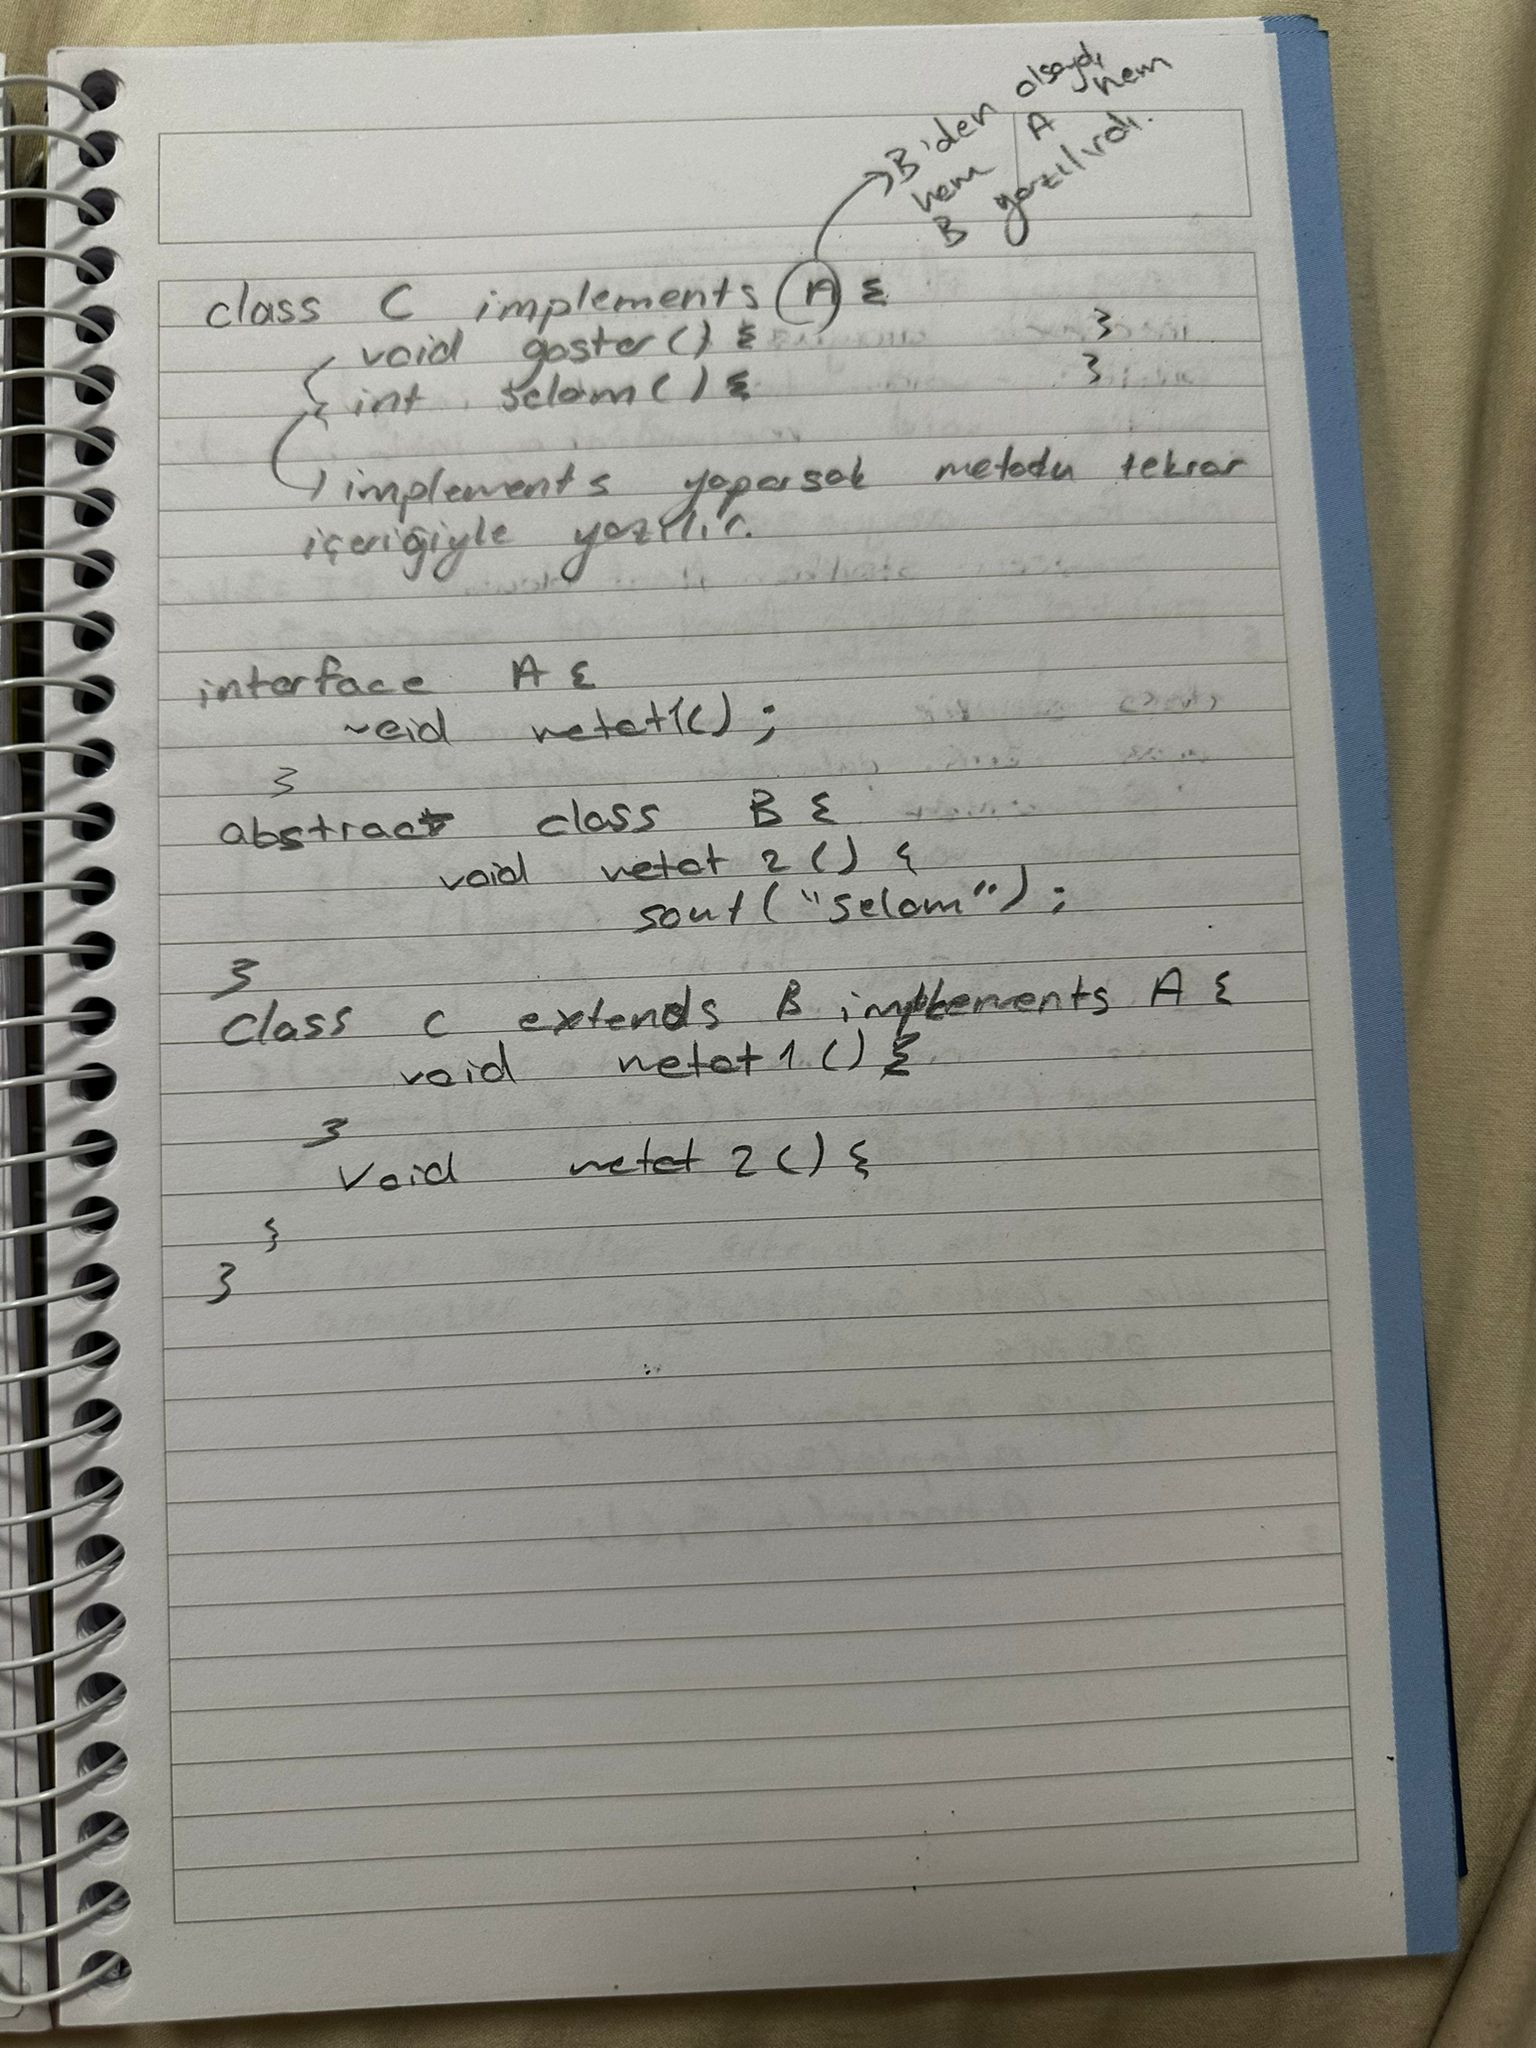 B'den olsaydı
hem A hem
B yazılırdı.
class C implements A {
void goster() { }
int selam() { }
implements yaparsak metodu tekrar
içeriğiyle yazılır.
interface A {
void metot1();
}
abstract class B {
void metot 2 () {
sout("selam");
}
class C extends B implements A {
void metot 1 () {
}
void metot 2 () {
}
}